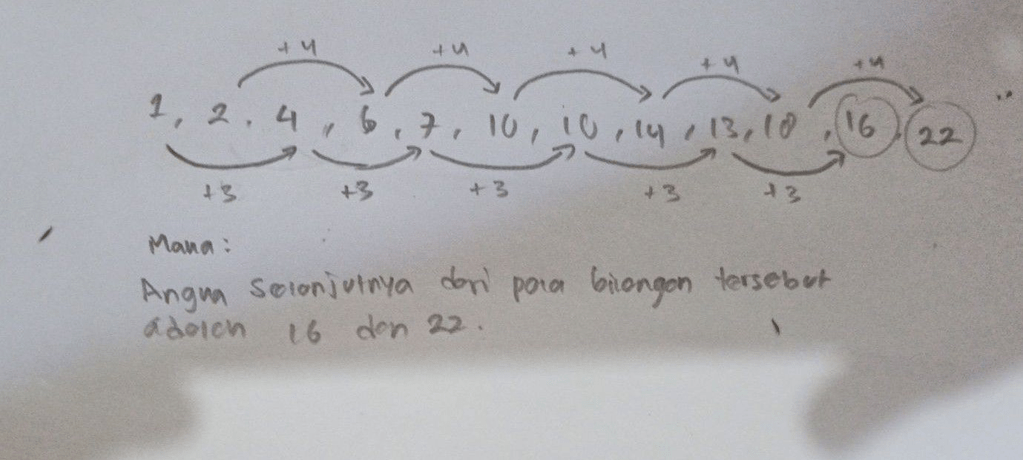 +4 +4 +4 +4 +4
1, 2, 4, 6, 7, 10, 10, 14, 13, 18, 16, 22
+3 +3 +3 +3 +3
Maka:
Angka selanjutnya dari pola bilangan tersebut
adalah 16 dan 22.